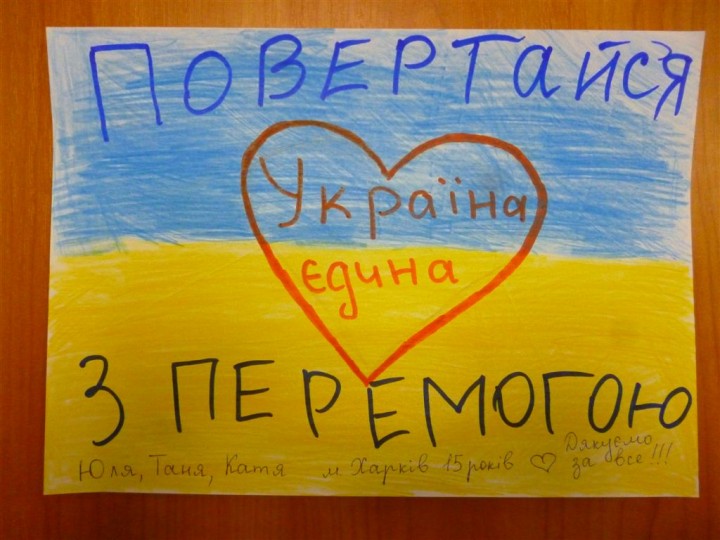 ПОВЕРТАЙСЯ
Україна
єдина
З ПЕРЕМОГОЮ
Юля, Таня, Катя м Харків 15 років ♡ Дякуємо
за все!!!